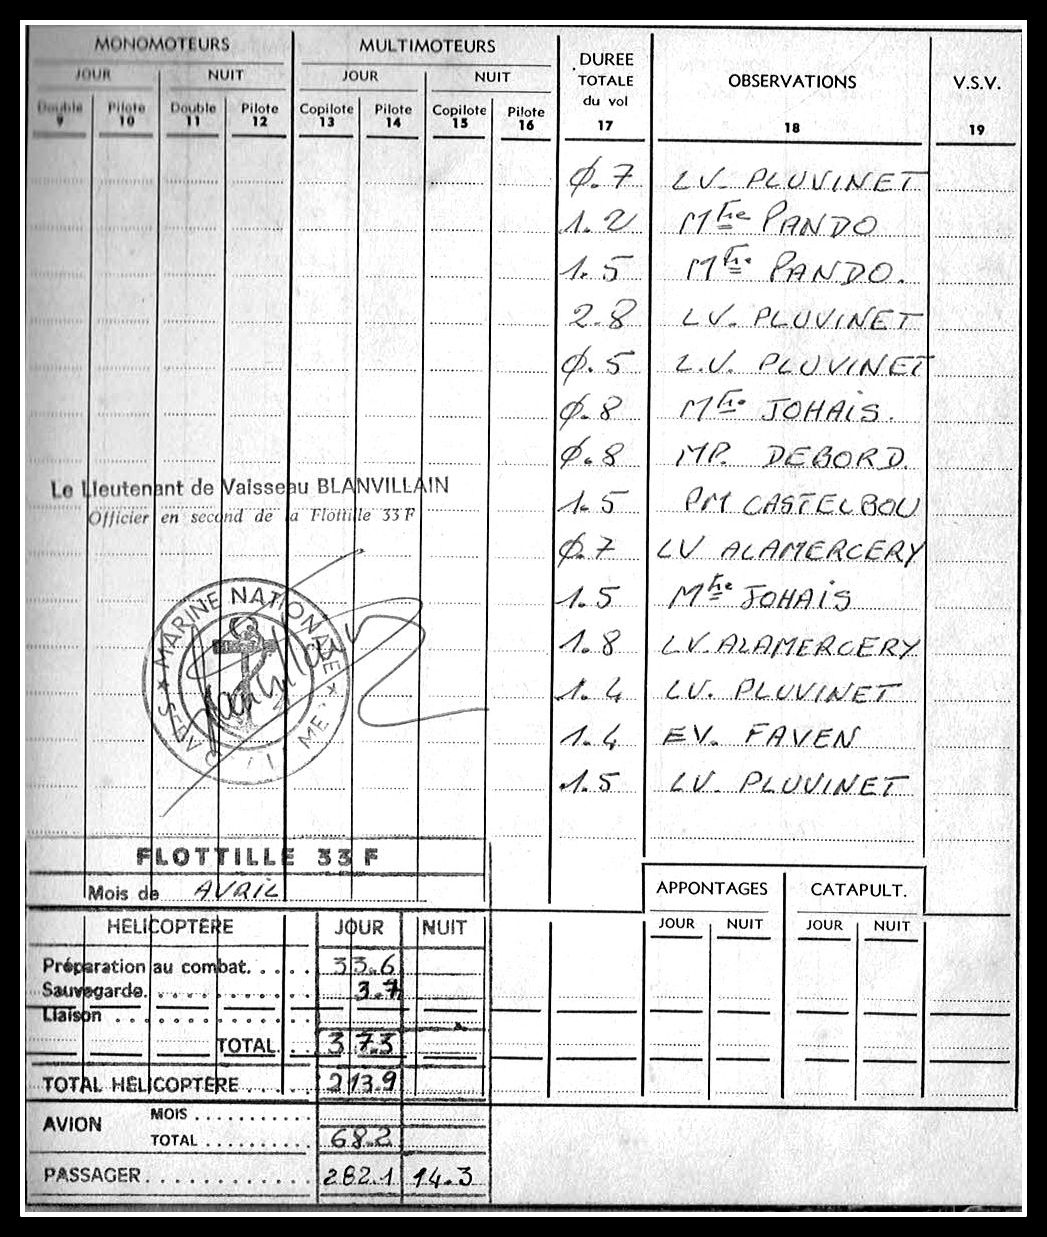 MONOMOTEURS MULTIMOTEURS DUREE TOTALE du vol OBSERVATIONS V.S.V.
JOUR NUIT JOUR NUIT
Double Pilote Double Pilote Copilote Pilote Copilote Pilote
9 10 11 12 13 14 15 16 17 18 19
Ø.7 LV. PLUVINET
1.2 Mtre PANDO
1.5 Mtre PANDO.
2.8 LV. PLUVINET
Ø.5 L.V. PLUVINET
Ø.8 Mtre JOHAIS.
Ø.8 MP. DEBORD.
Le Lieutenant de Vaisseau BLANVILLAIN
Officier en second de la Flottille 33 F
1.5 PM CASTELBOU
Ø.7 LV ALAMERCERY
1.5 Mtre JOHAIS
1.8 LV. ALAMERCERY
1.4 LV. PLUVINET
1.4 EV. FAVEN
1.5 LV. PLUVINET
★ MARINE NATIONALE ★
FLOTTILLE 33 F
Mois de AVRIL
APPONTAGES CATAPULT.
JOUR NUIT JOUR NUIT
HÉLICOPTÈRE JOUR NUIT
Préparation au combat..... 33.6
Sauvegarde........... 3.7
Liaison
TOTAL... 37.3
TOTAL HÉLICOPTÈRE.... 213.9
AVION MOIS
TOTAL 68.2
PASSAGER 282.1 14.3